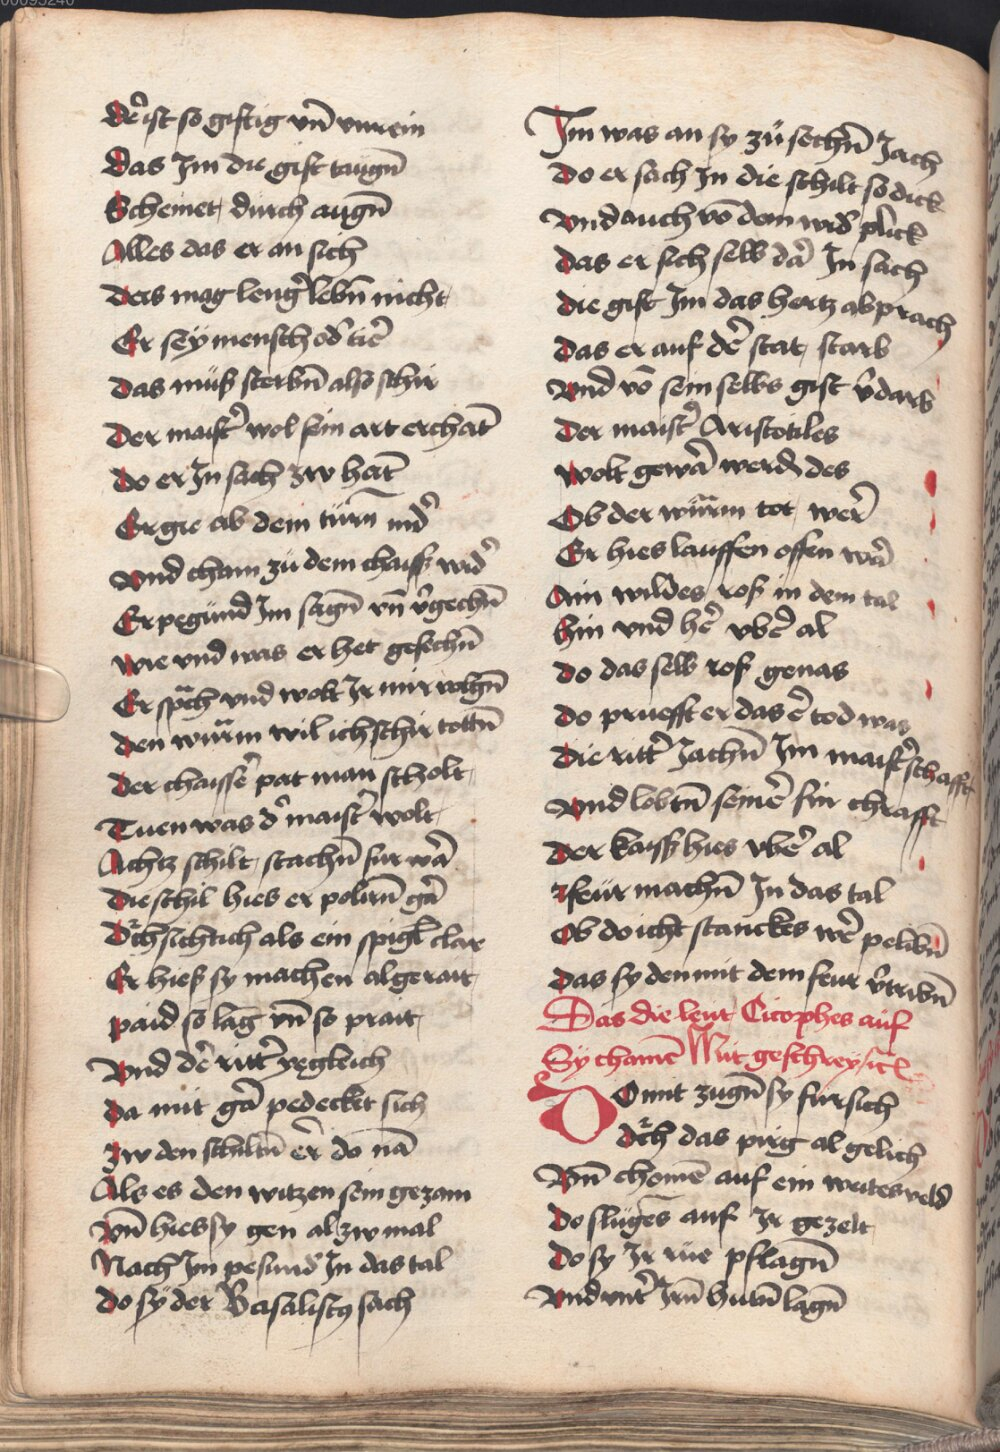 00095240
Der ist so giftig vn̄ vnrein
Das Im die gift taugn̄
Scheinet durch augn̄
Alles das er an sich
Ders mag leng̉ lebn̄ nicht
Er sey mensch od̉ tier̄
Das muß sterbn̄ also schir
Der maist̉ wol sein art erchāt
Do er In sach zw hāt
Er gie ab dem turn̄ nid̉
Vnd cham zu dem chaiß wid̉
Er pegund Im sagn̄ vn̄ v̉gechn̄
Wie vnd was er het gesechn̄
Er sprach vnd wolt Ir mir volgn̄
Den wurm wil ich schir tottn̄
Der chaisser̄ pat man scholt
Tuen was d̉ maist̉ wolt
Achtz schilt stachn̄ fur war̄
Die schil hies er polirn̄ gar̄
Dͬch sichtich als ein spigl̄ clar
Er hieß sy machen algerait
Paid so lag vn̄ so prait
Vnd der̄ ritt̉ yegleich
Da mit gar̄ pedecket sich
Zw den schiltn̄ er̄ do nā
Als es den witzen sein gezam
Vn̄ hies sy gen alzw mal
Nach Im pesund̉ In das tal
Do sy der Basaliscꝰ sach
Im was an sy zu sechn̄ Jach
Do er sach In die schilt so dick
Vnd auch vō dem wid̉ plick
Das er sich selb dar̄ In sach
Die gift Im das hertz abprach
Das er auf der̄ stat starb
Vnd vō sein selbs gift v̉darb
Der maist̉ Aristotiles
Wolt gewar̄ werdn̄ des
Ob der wurm tot wer̄
Er hies lauffen offen war̄
Ain wildes roß in dem tal
Hin vnd her̄ vber̄ al
Do das selb roß genas
Do prueft er das er̄ tod was
Die ritt̉ Jachn̄ Im maist̉schafft
Vnd lobtn̄ seiner̄ sin chrafft
Der kaiß hies vber̄ al
Feur machn̄ In das tal
Ob do icht stanckes wer̄ pelibn̄
Das sy den mit dem feur v̉tribn̄
Das die leut Cicophes auf
Sy chamē Mit geschrey
Do mit zugn̄ sy fur sich
Dͬch das pirg al gelich
Vn̄ chomē auf ein weites veld
Do slugens auf Ir gezelt
Do sy Ir rue pflagn̄
Vnd vnt̉ Irn̄ hutn̄ lagn̄